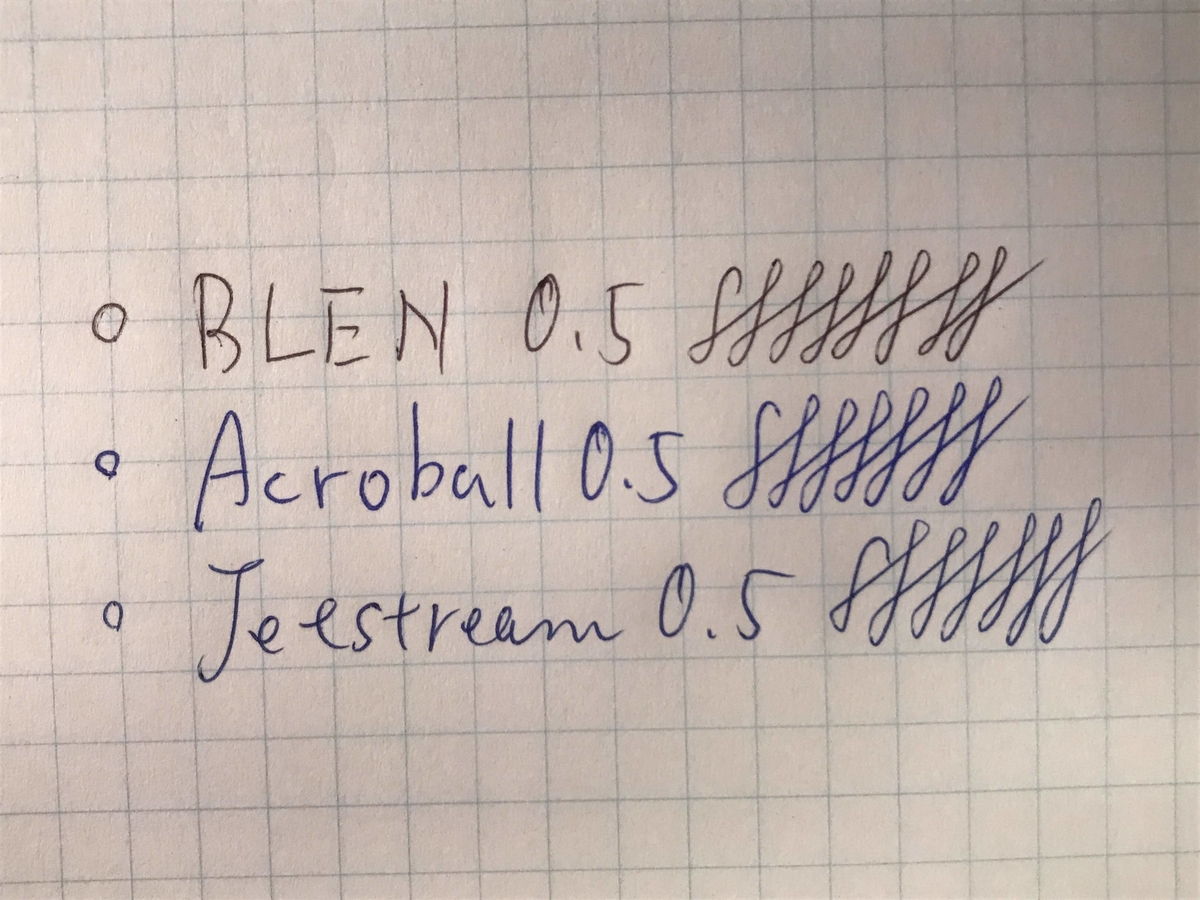 BLEN 0.5
Acroball 0.5
Jetstream 0.5